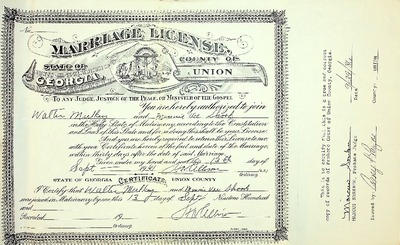 No.
MARRIAGE LICENSE.
STATE OF
GEORGIA,
COUNTY OF
UNION
TO ANY JUDGE, JUSTICE OF THE PEACE, OR MINISTER OF THE GOSPEL
You are hereby authorized to join
Walter and Minnie Vee Shook
in the Holy State of Matrimony, according to the Constitution
and Laws of this State and for so doing this shall be your License.
And you are hereby required to return this License to me
with your Certificate hereon of the fact and date of the Marriage,
within thirty days after the date of said Marriage.
Given under my hand and seal this 13th day of
Sept 19
Ordinary
STATE OF GEORGIA Certificate UNION COUNTY
I Certify that Walter and Minnie Vee Shook
were joined in Matrimony by me this 13 day of Sept Nineteen Hundred
and
Recorded 19
Ordinary
This is to certify that this is a true and correct
copy of records of Probate Court of Union County, Georgia.
Date
County: UNION
Issued by